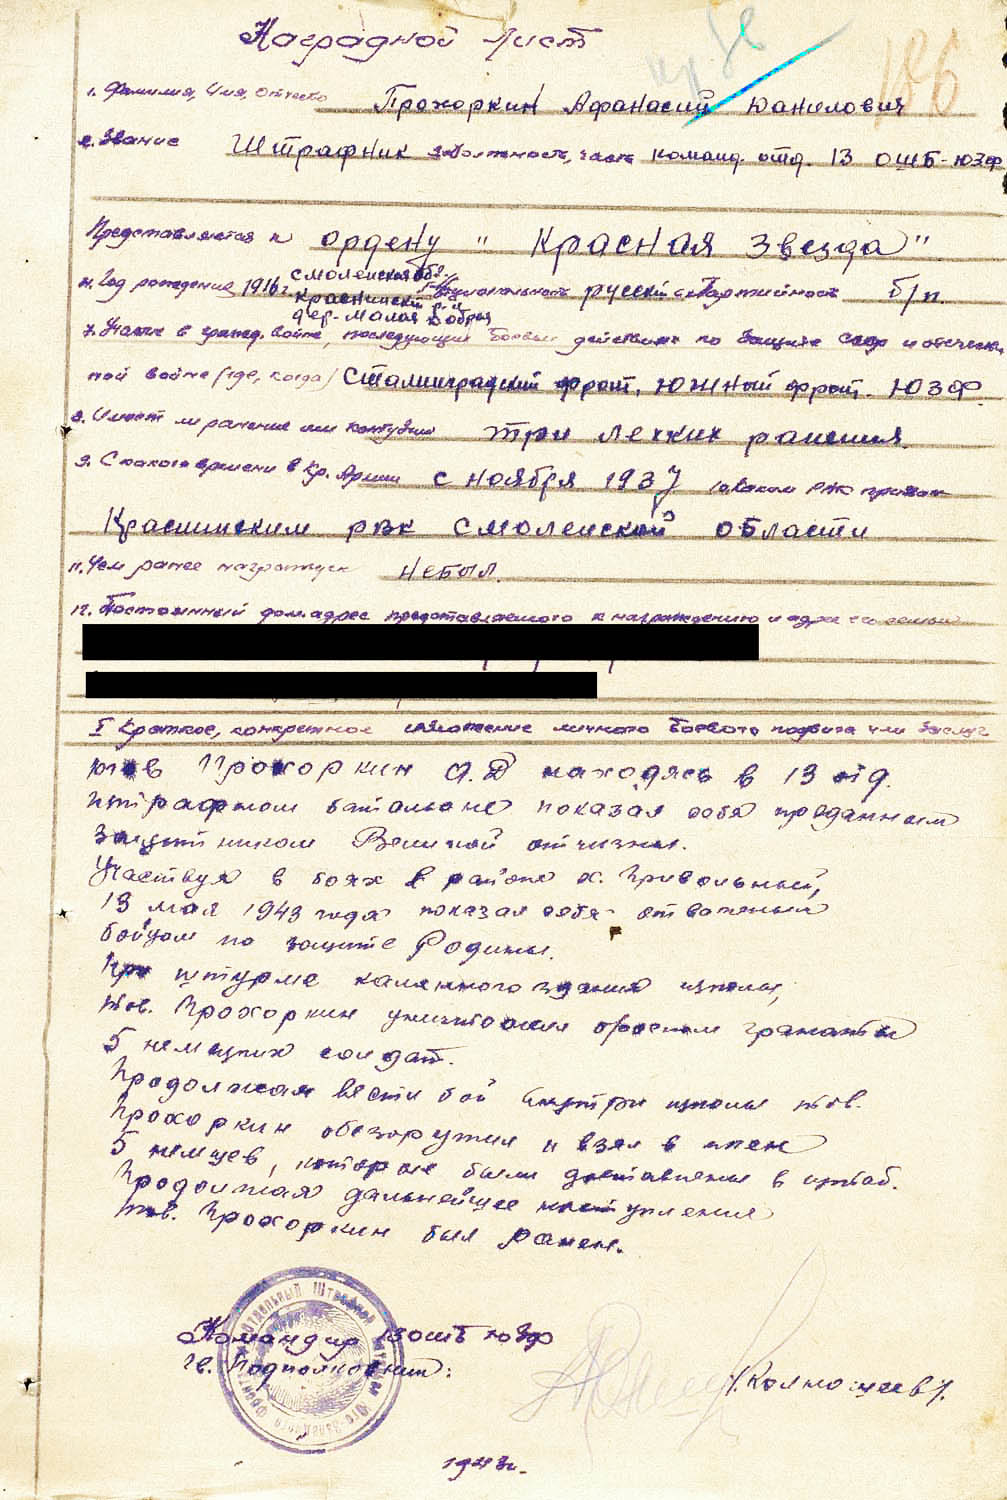 Наградной Лист
186
1. Фамилия, Имя, Отчество Прохоркин Афанасий Данилович
2. Звание Штрафник 3. должность, часть команд. отд. 13 ОШБ-ЮЗФ
Представляется к ордену "Красная Звезда"
4. Год рождения 1916 г. Смоленская обл. Краснинский р-н дер. Малая Добрая 5. национальность русский 6. Партийность б/п.
7. Участие в гражд. войне, последующих боевых действиях по защите СССР и отечествен
ной войне (где, когда) Сталинградский фронт, Южный фронт. ЮЗФ.
8. Имеет ли ранение или контузию три легких ранения.
9. С какого времени в Кр. Армии с ноября 1937 каким РВК призван
Краснинским РВК Смоленской области
11. Чем ранее награжден небыл.
12. Постоянный дом. адрес представляемого к награждению и адрес его семьи
I Краткое, конкретное изложение личного боевого подвига или заслуг
тов Прохоркин А.Д находясь в 13 отд.
штрафном батальоне показал себя преданным
защитником Великой отчизны.
Участвуя в боях в районе х. Привольный,
13 мая 1943 года показал себя отважным
бойцом по защите Родины.
При штурме каменного здания школы,
тов. Прохоркин уничтожил броском гранаты
5 немецких солдат.
Продолжая вести бой внутри школы тов.
Прохоркин обезоружил и взял в плен
5 немцев, которые были доставлены в штаб.
Продолжая дальнейшее наступление
тов. Прохоркин был ранен.
Командир 13 ОШБ ЮЗФ
Гв. Подполковник:
1943 г.